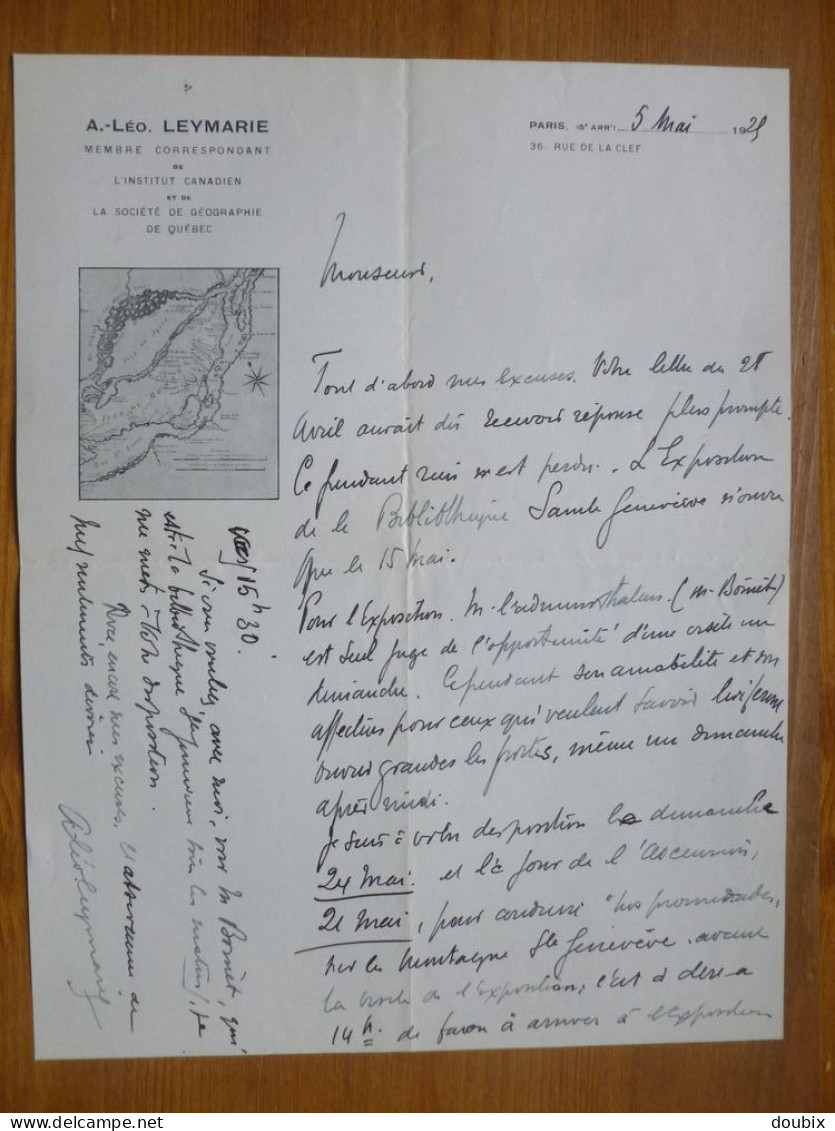 A.-LÉO. LEYMARIE
MEMBRE CORRESPONDANT
DE
L'INSTITUT CANADIEN
ET DE
LA SOCIÉTÉ DE GÉOGRAPHIE
DE QUÉBEC
PARIS, (5e ARRt) 5 Mai 1925
36, RUE DE LA CLEF
Monsieur,
Tout d'abord mes excuses. Votre lettre du
Avril aurait dû recevoir réponse plus prompte.
Cependant rien n'est perdu. L'Exposition
de la Bibliothèque Sainte Geneviève n'ouvre
que le 15 Mai.
Pour l'Exposition. M. l'administrateur (M. Boinet)
est seul juge de l'opportunité d'une visite un
dimanche. Cependant son amabilité et son
affection pour ceux qui veulent savoir
ouvrir grandes les portes, même un dimanche
après midi.
Je suis à votre disposition le dimanche
24 Mai. et le jour de l'Ascension,
21 Mai, pour conduire nos promenades,
sur la Montagne Ste Geneviève avant
la visite de l'Exposition, c'est à dire à
14 h. de façon à arriver à l'Exposition
vers 15h 30.
Si vous voulez, avec moi, voir M. Boinet, qui
est à la bibliothèque Ste Geneviève tous les matins, je
me mets à votre disposition.
encore mes excuses, et assurance de
mes sentiments
A Léo Leymarie
doubix
delcampe.net